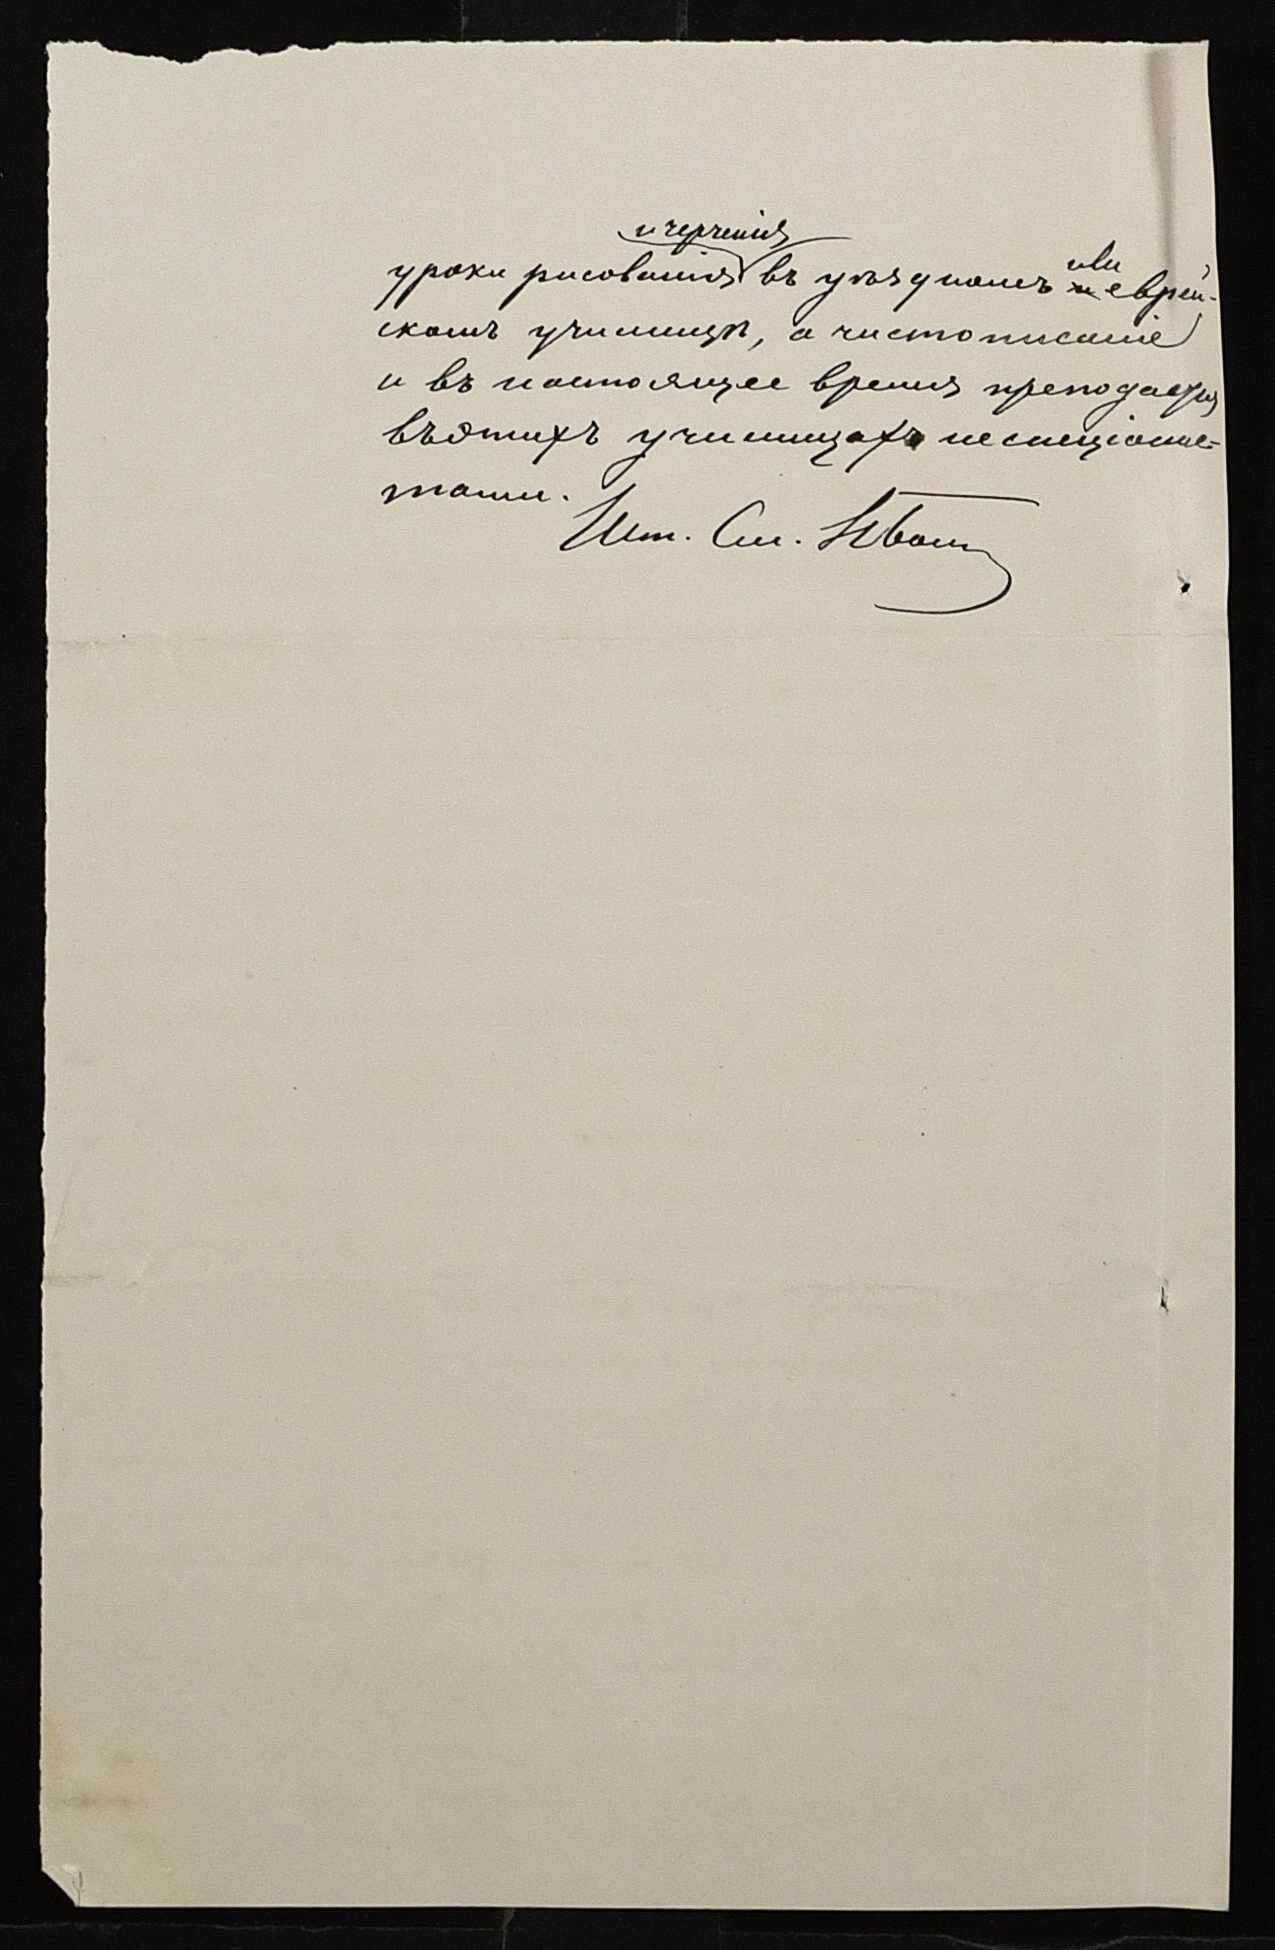 и черченія
уроки рисованія въ уѣздномъ или еврей-
скомъ училищѣ, а чистописаніе
и въ настоящее время преподается
въ этихъ училищахъ неспеціалис-
тами.
Шт. См.